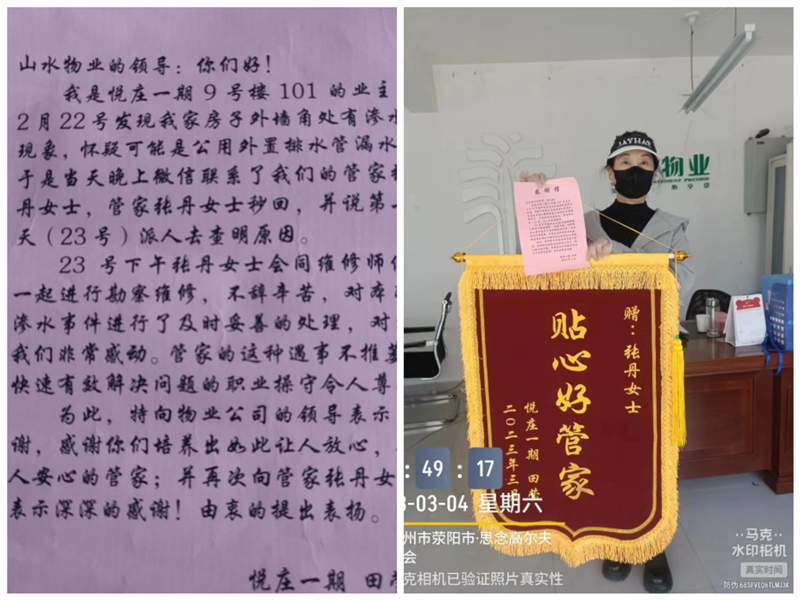 山水物业的领导：你们好！
我是悦庄一期9号楼101的业主
2月22号发现我家房子外墙角处有渗水
现象，怀疑可能是公用外置排水管漏水
于是当天晚上微信联系了我们的管家
丹女士，管家张丹女士秒回，并说第
天（23号）派人去查明原因。
23号下午张丹女士会同维修师
一起进行勘察维修，不辞辛苦，对
渗水事件进行了及时妥善的处理，对
我们非常感动。管家的这种遇事不推
快速有效解决问题的职业操守令人尊
为此，特向物业公司的领导表示
谢，感谢你们培养出如此让人放心，
人安心的管家；并再次向管家张丹女
表示深深的感谢！由衷的提出表扬。
悦庄一期 田
JAYHAN
物业
赠：张丹女士
贴心好管家
悦庄一期 田
二〇二三年三
:49:17
-03-04 星期六
州市荥阳市·思念高尔夫
会
克相机已验证照片真实性
马克
水印相机
真实时间
防伪